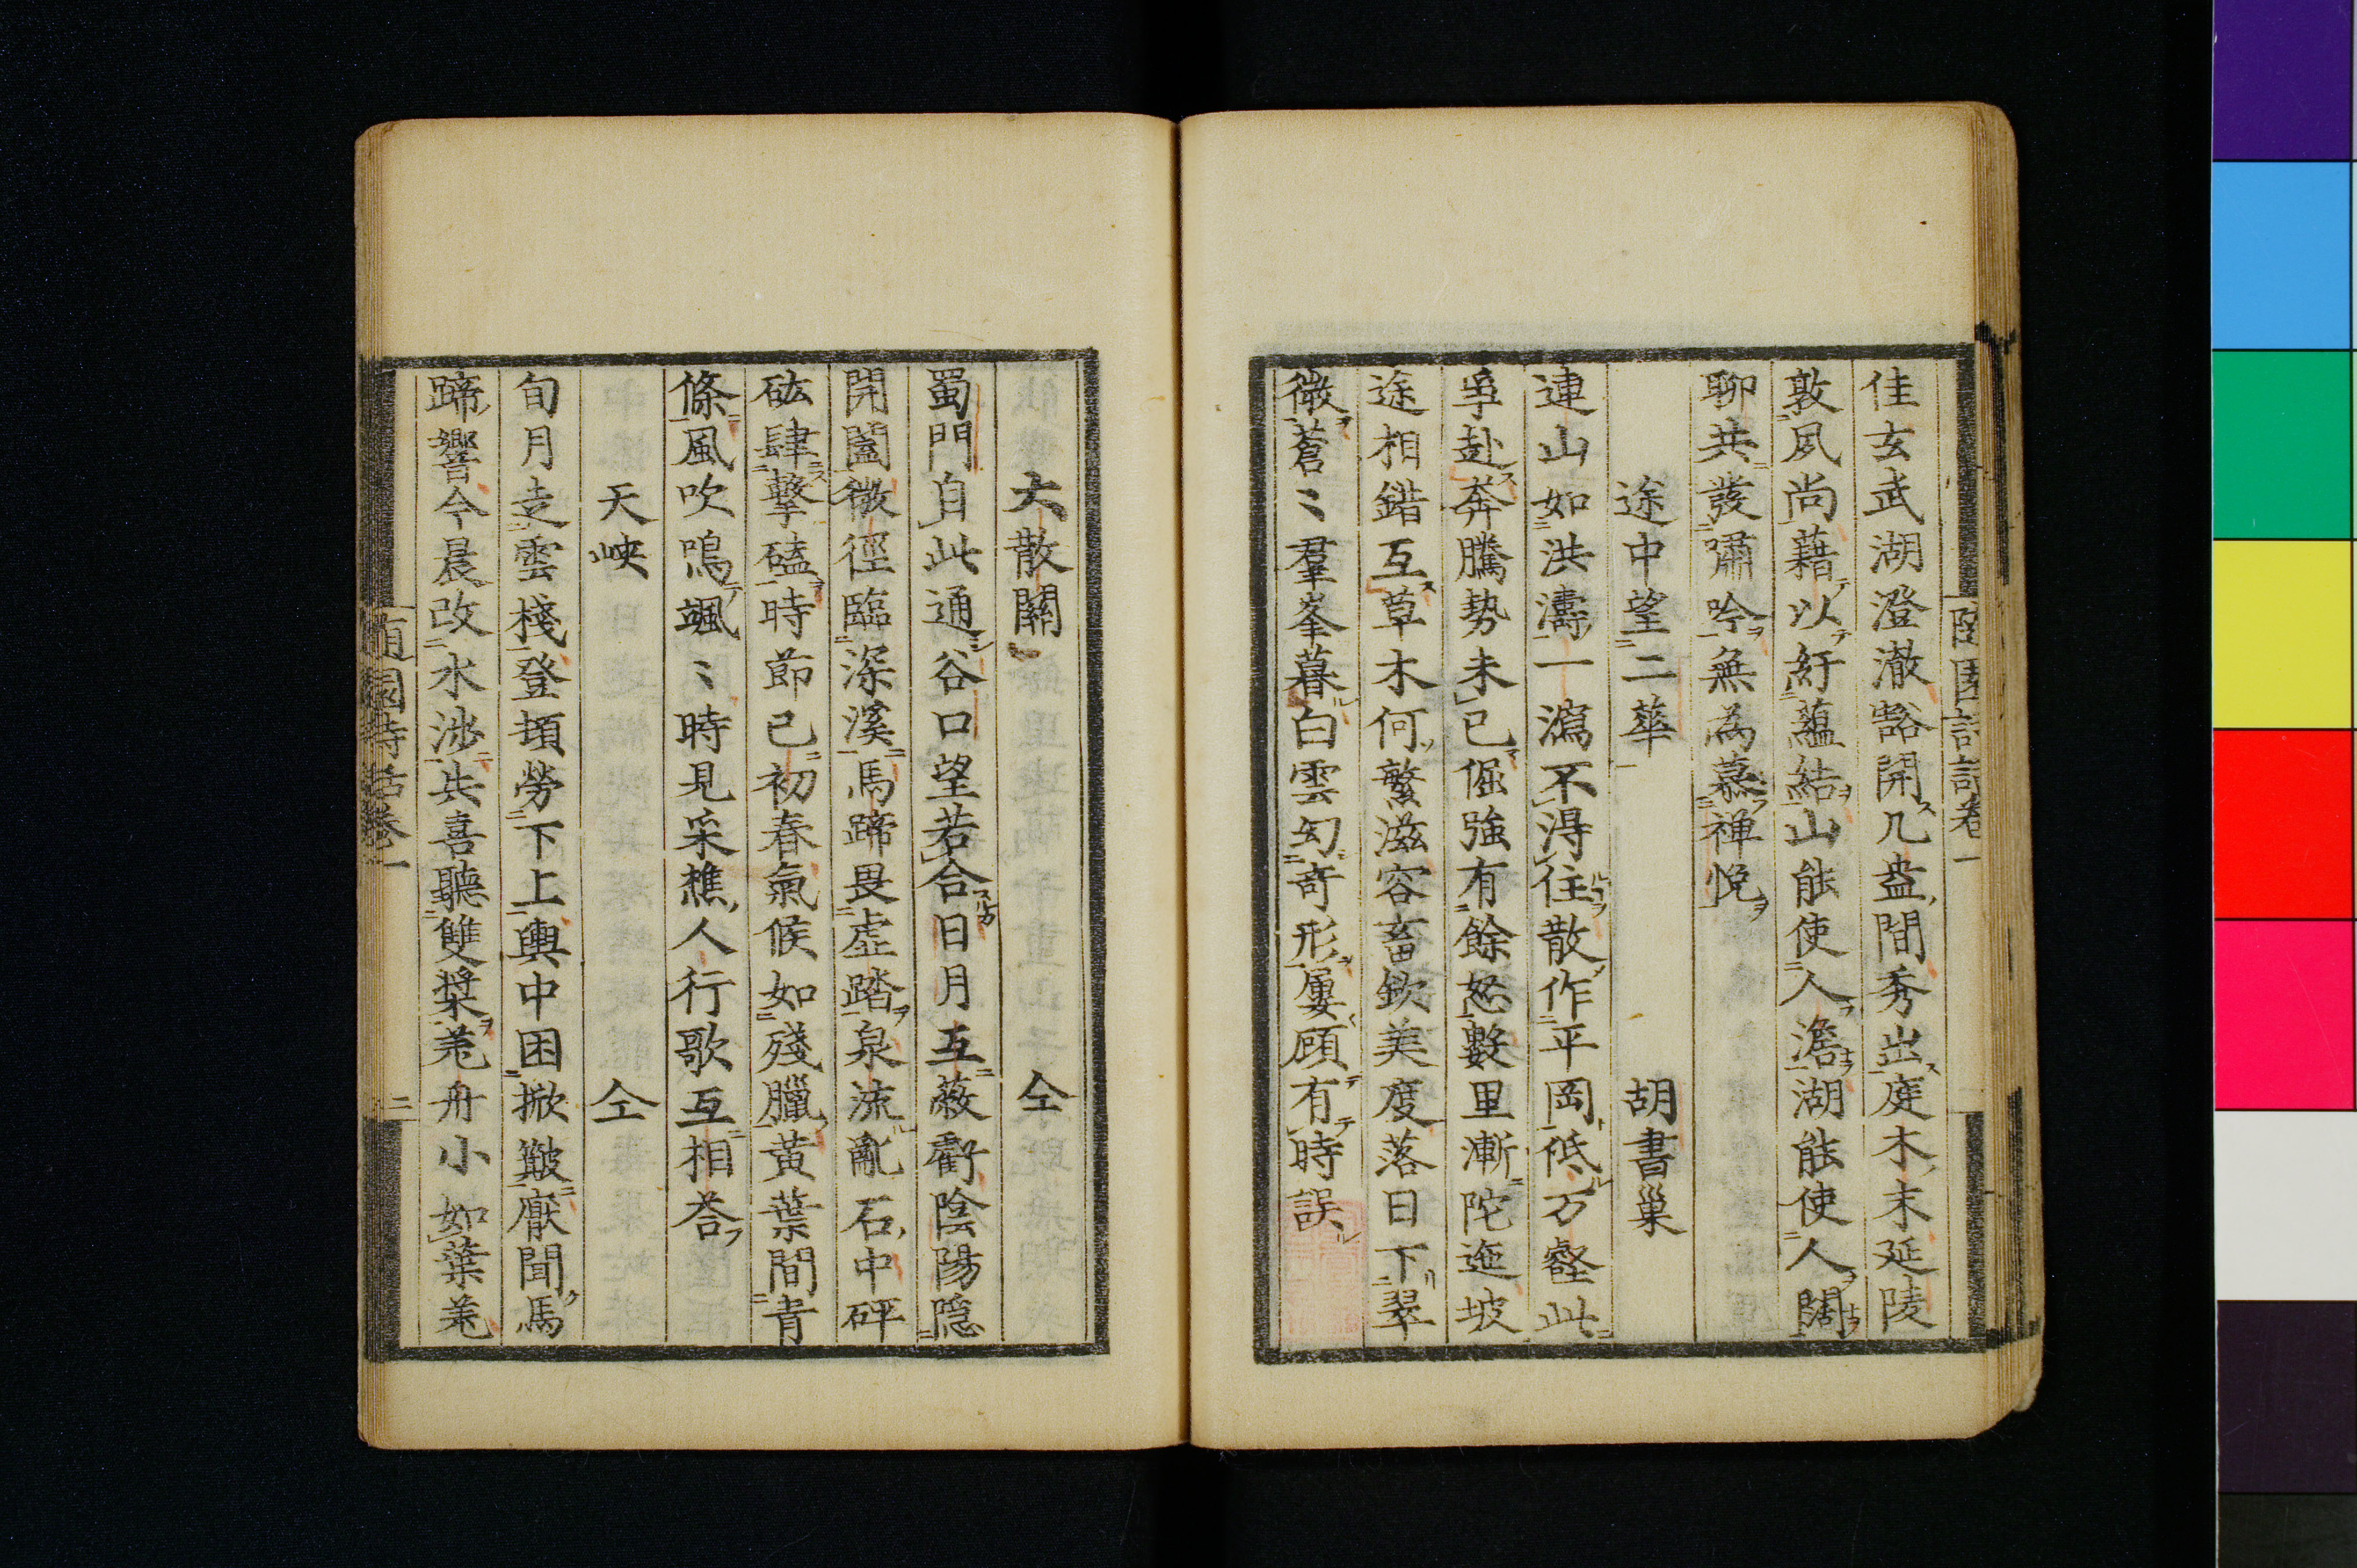 佳玄武湖澄澈豁開几盎間秀出庭木末延陵
敦夙尚藉以紓蘊結山能使人澹湖能使人闊
聊共發嘯吟無為慕禅悅
途中望二華 胡書巢
連山如洪濤一瀉不得住散作平岡低万壑此
爭赴奔騰勢未已倔強有餘怒數里漸陀迤坡
途相錯互草木何繁滋容畜欽美度落日下翠
微蒼〻羣峯暮白雲幻奇形屢顧有時誤
大散關 仝
蜀門自此通谷口望若合日月互蔽虧陰陽隱
開闔微徑臨深溪馬蹄畏虛踏泉流亂石中砰
砿肆擊磕時節已初春氣候如殘臘黃葉間青
條風吹鳴颯〻時見采樵人行歌互相荅
天峽 仝
旬月走雲棧登頓勞下上輿中困掀簸厭聞馬
蹄響今晨改水涉共喜聽雙槳羗舟小如葉羗
隨園詩話卷一
二